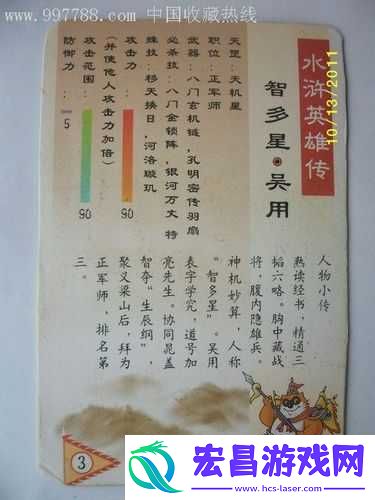 www.997788.com 中国收藏热线
水浒英雄传
10/13/2011
智多星•吴用
天罡：天机星
职位：正军师
武器：八门玄机链，孔明密传羽扇
必杀技：八门金锁阵，银河万丈 特
殊技：移天换日，河洛璇玑
攻击力：90
（并使他人攻击力加倍）
攻击范围：90
防御力：5
人物小传
熟读经书，精通三
韬六略。胸中藏战
将，腹内隐雄兵。
神机妙算，人称
“智多星”。吴用
表字学究，道号加
亮先生。协同晁盖
智夺“生辰纲”，
聚义梁山后，拜为
正军师，排名第
三。
3
宏昌游戏网
hcs-laser.com